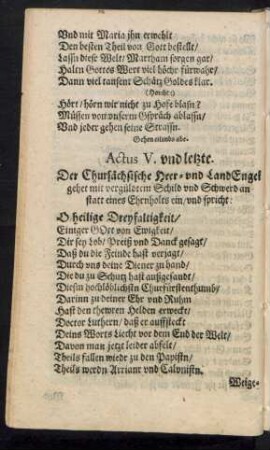 Vnd mit Maria jhn erwehlt
Den besten Theil von Gott bestellt/
Lassn diese Welt/ Martham sorgen gar/
Haltn Gottes Wort viel höchr fürwahr/
Dann viel tausent Schätz Goldes klar.
(Horcht:)
Hört/ hörn wir nicht zu Hofe blasn?
Müssen von vnserm Gspräch ablassn/
Vnd jeder gehen seine Strassn.
Gehen einands abe.
Actus V. vnd letzte.
Der Chursächsische Heer- vnd LandEngel
gehet mit vergüldtem Schild vnd Schwerd an
statt eines Ehrnholts ein/ vnd spricht:
O heilige Dreyfaltigkeit/
Einiger GOtt von Ewigkeit/
Dir sey Lob/ Preiß vnd Danck gesagt/
Daß du die Feinde hast verjagt/
Durch vns deine Diener zu hand/
Die du zu Schutz hast außgesandt/
Diesm hochlöblichsten Churfürstenthumb/
Darinn zu deiner Ehr vnd Ruhm
Hast den thewren Helden erweckt/
Doctor Luthern/ daß er auffsteckt
Deins Worts Liecht vor dem End der Welt/
Davon man jetzt leider abfelt/
Theils fallen wiedr zu den Papistn/
Theils werdn Arriant vnd Calvnistn.
Weige-